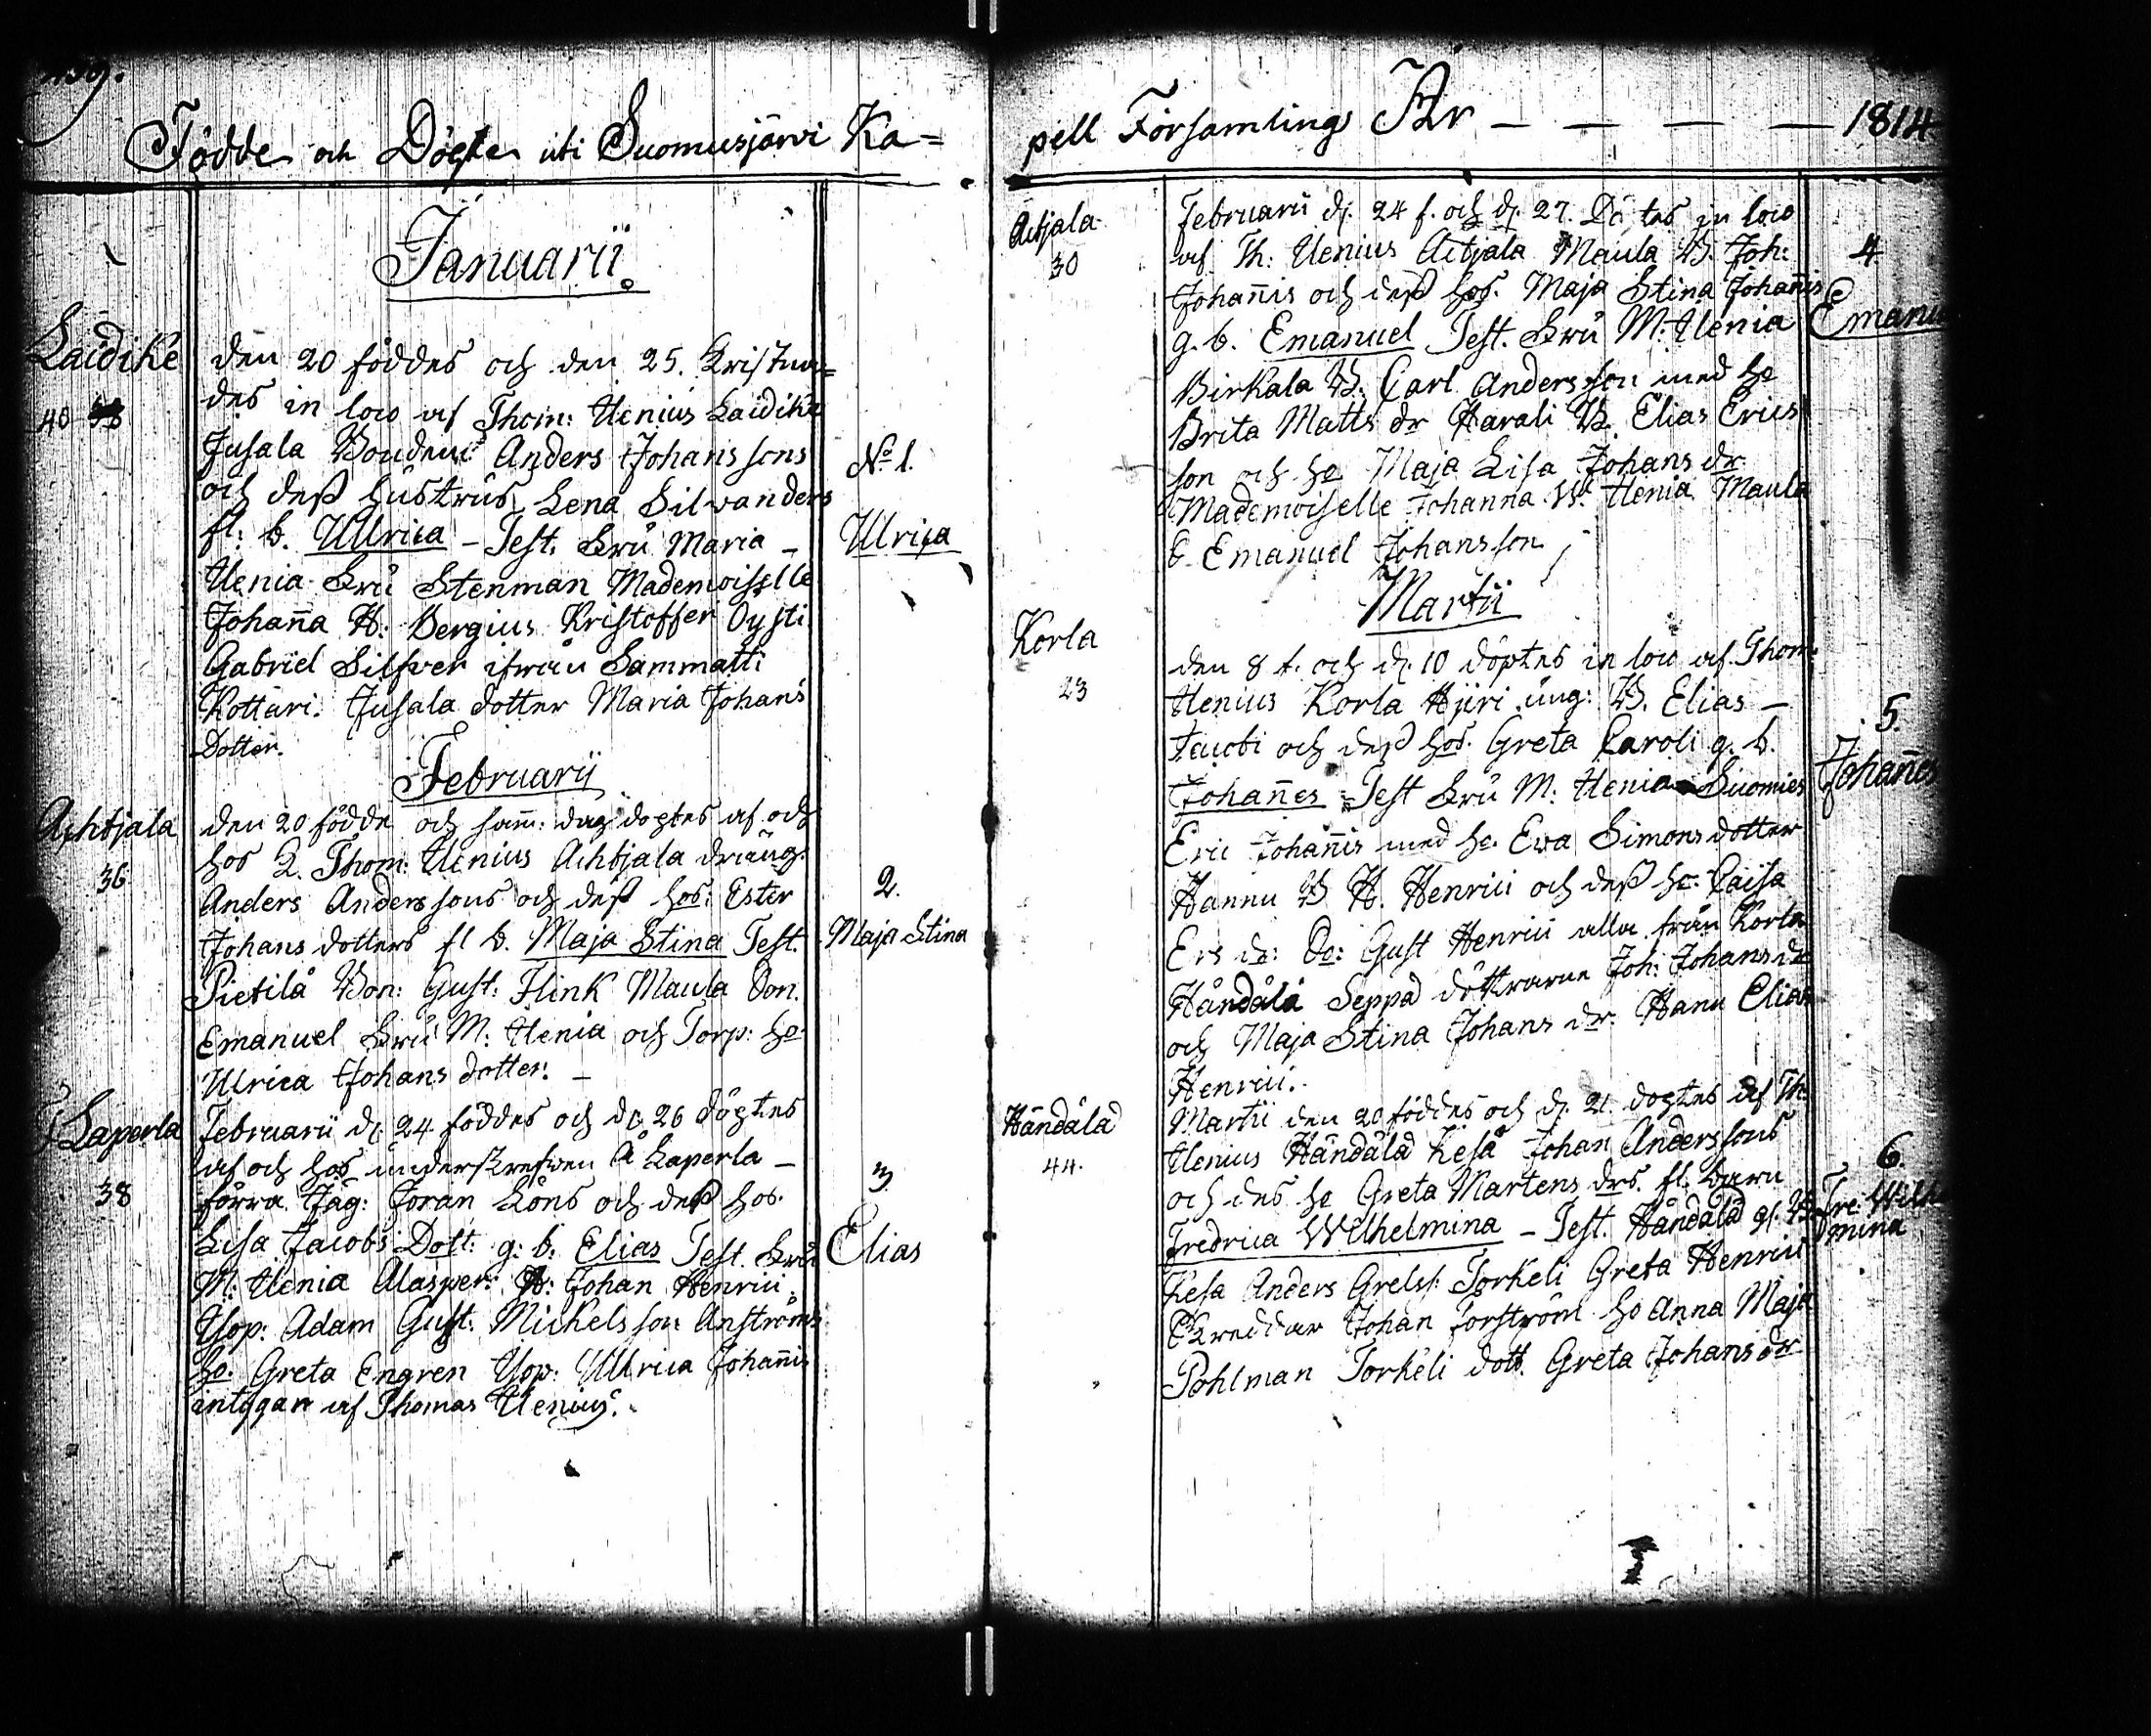 Födde och Döpte uti Suomusjärvi Ka=
Januarii.
Laidike
40
den 20 föddes och den 25. Kristna=
des in loco af Thom: Uenius Laidike
Jusala Bondens Anders Johanssons
och deß hustrus Lena Silvanders
fl: b. Ullrica - Test. Fru Maria -
Uenia Fru Stenman Mademoiselle
Johanna H: Bergius Kristoffer Oysti
Gabriel Silfver ifrån Sammatti
Kottari: Jusala dotter Maria Johans
Dotter.
No 1.
Ulrica
Februarii
Achtjala
36
den 20 födde och sam: dag döptes af och
hos Thom: Uenius Achtjala dräng:
Anders Anderssons och deß hos: Ester
Johans dotters fl b. Maja Stina Test.
Pietilä Bon: Gust: Flink Maula Bon.
Emanuel Fru M: Uenia och Torp: ho
Ulrica Johans dotter. -
2.
Maja Stina
Laperla
38
Februarii d. 24 föddes och d. 26 döptes
af och hos underskrefven Laperla -
förra Jäg: Joran Löns och deß hos.
Lisa Jacobs Dott: g: b: Elias Test. Fru
M: Uenia Alasper: H: Johan Henrici
Ysop: Adam Gust: Mickelsson Anströms
ho. Greta Engren Ysop: Ullrica Johannis
intygar af Thomas Uenius.
3
Elias
pell Församling År - - - - 1814
Achjala
30
Februarii d. 24 f. och d. 27. Dö tes in loco
af Th: Uenius Achjala Maula B. Joh:
Johannis och deß hos. Maja Stina Johannis
g. b. Emanuel Test. Fru M: Uenia
Birkala B. Carl Andersson med ho
Brita Matts dr Harali B. Elias Erics
son och ho Maja Lisa Johans dr
Mademoiselle Johanna W. Uenia Maula
B Emanuel Johansson
4
Emanu
Martii
Korla
23
den 8 f. och d. 10 döptes in loco af Thom:
Uenius Korla Hjiri ung: B. Elias -
Jacobi och deß hos. Greta Caroli g. b.
Johannes Test Fru M: Uenia Suomies
Eric Johannis med ho. Ewa Simons dotter
Hannu B H. Henrici och deß ho: Caisa
Ers dr: Do: Gust Henrici alla från Korla
Händälä Seppä döttrarne Joh: Johans dr
och Maja Stina Johans dr. Hanu Elias
Henrici.
5.
Johannes
Händälä
44.
Martii den 20 föddes och d. 21. döptes af Th:
Uenius Händälä Kesä Johan Anderssons
och des ho Greta Martens drs. fl. barn
Fredrica Wilhelmina - Test. Händälä gl: B
Kesa Anders Grelss: Torkeli Greta Henrici
Skreddar Johan Forström ho Anna Maja
Pohlman Torkeli dott. Greta Johans dr
6.
Fre: Wilh
mina